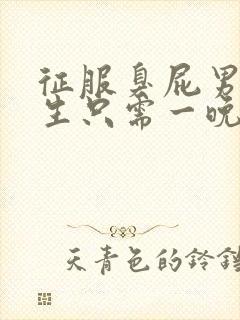 征服臭屁男
生只需一晚
天青色的铃铛